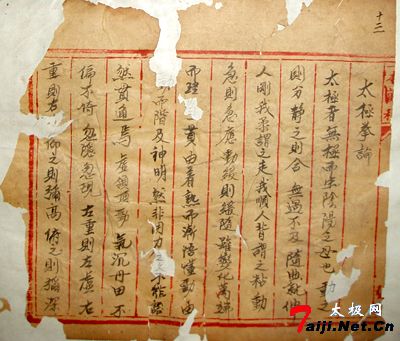 十二
太極拳論
太極者無極而生陰陽之母也動之
則分静之則合無過不及隨曲就伸
人剛我柔謂之走我順人背謂之粘動
急則急應動緩則緩隨雖變化萬端
而理貫由着熟而漸悟懂勁由
而階及神明然非用力之久不能豁
然貫通焉虛領頂勁氣沉丹田不
偏不倚忽隱忽現左重則左虛右
重則右仰之則彌高俯之則彌深
太极网
7aiji.Net.Cn